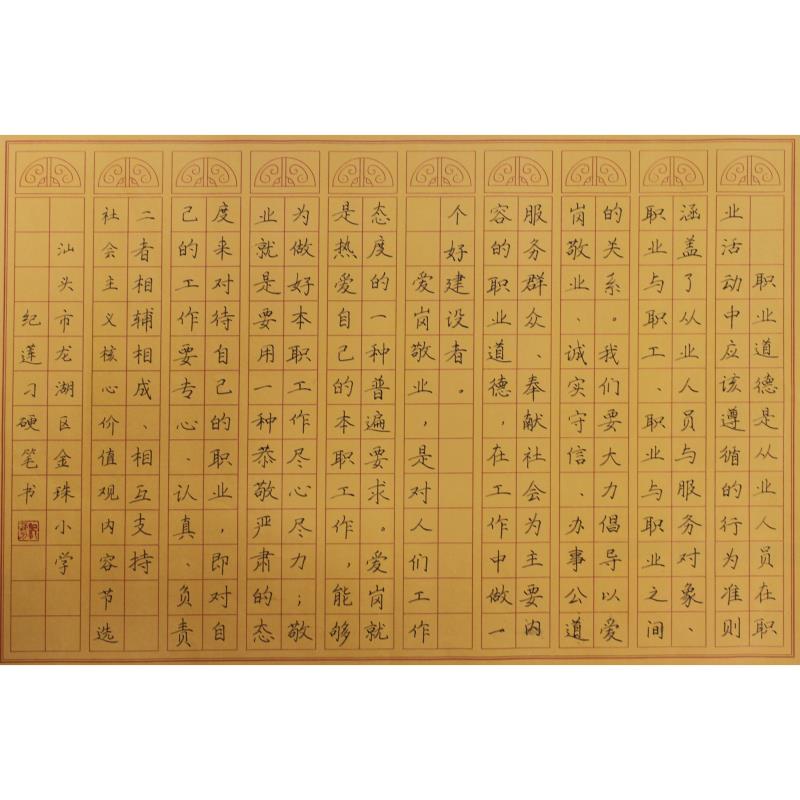 职业道德是从业人员在职
业活动中应该遵循的行为准则
涵盖了从业人员与服务对象、
职业与职工、职业与职业之间
的关系。我们要大力倡导以爱
岗敬业、诚实守信、办事公道
服务群众、奉献社会为主要内
容的职业道德，在工作中做一
个好建设者。
爱岗敬业，是对人们工作
态度的一种普遍要求。爱岗就
是热爱自己的本职工作，能够
为做好本职工作尽心尽力；敬
业就是要用一种恭敬严肃的态
度来对待自己的职业，即对自
己的工作要专心、认真、负责
二者相辅相成、相互支持
社会主义核心价值观内容节选
汕头市龙湖区金珠小学
纪莲刁硬笔书